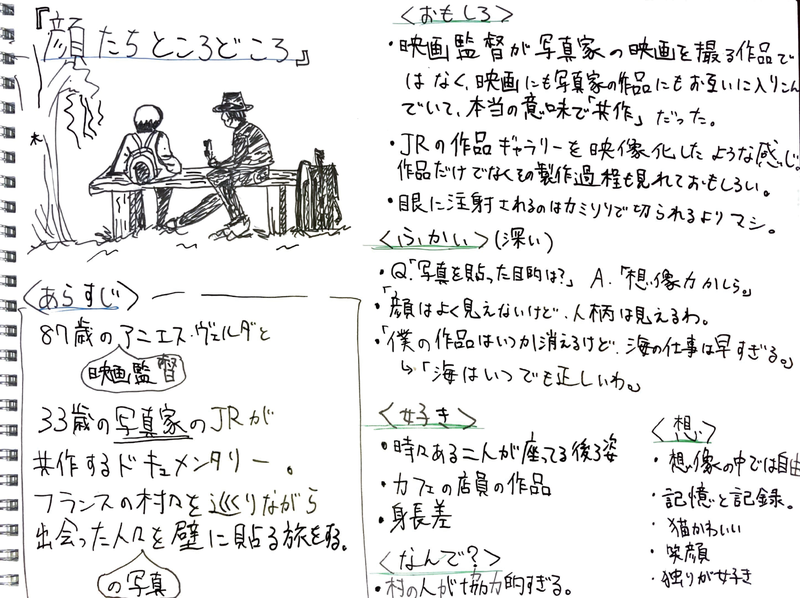 『顔たちところどころ』
木
〈あらすじ〉
87歳のアニエス・ヴェルダと
映画監督
33歳の写真家のJRが
共作するドキュメンタリー。
フランスの村々を巡りながら
出会った人々を壁に貼る旅をする。
の写真
〈おもしろ〉
・映画監督が写真家の映画を撮る作品で
はなく、映画にも写真家の作品にもお互いに入りこん
でいて、本当の意味で「共作」だった。
・JRの作品ギャラリーを映像化したような感じ。
作品だけでなくその製作過程も見れておもしろい。
・眼に注射されるのはカミソリで切られるよりマシ。
〈ふかい〉(深い)
・Q.「写真を貼った目的は?」 A.「想像力かしら。」
・「顔はよく見えないけど、人柄は見えるわ。
・「僕の作品はいつか消えるけど、海の仕事は早すぎる。」
↳「海はいつでも正しいわ。」
〈好き〉
・時々ある二人が座ってる後ろ姿
・カフェの店員の作品
・身長差
〈なんで?〉
・村の人が協力的すぎる。
〈想〉
・想像の中では自由
・記憶と記録。
・猫かわいい
・笑顔
・独りが好き